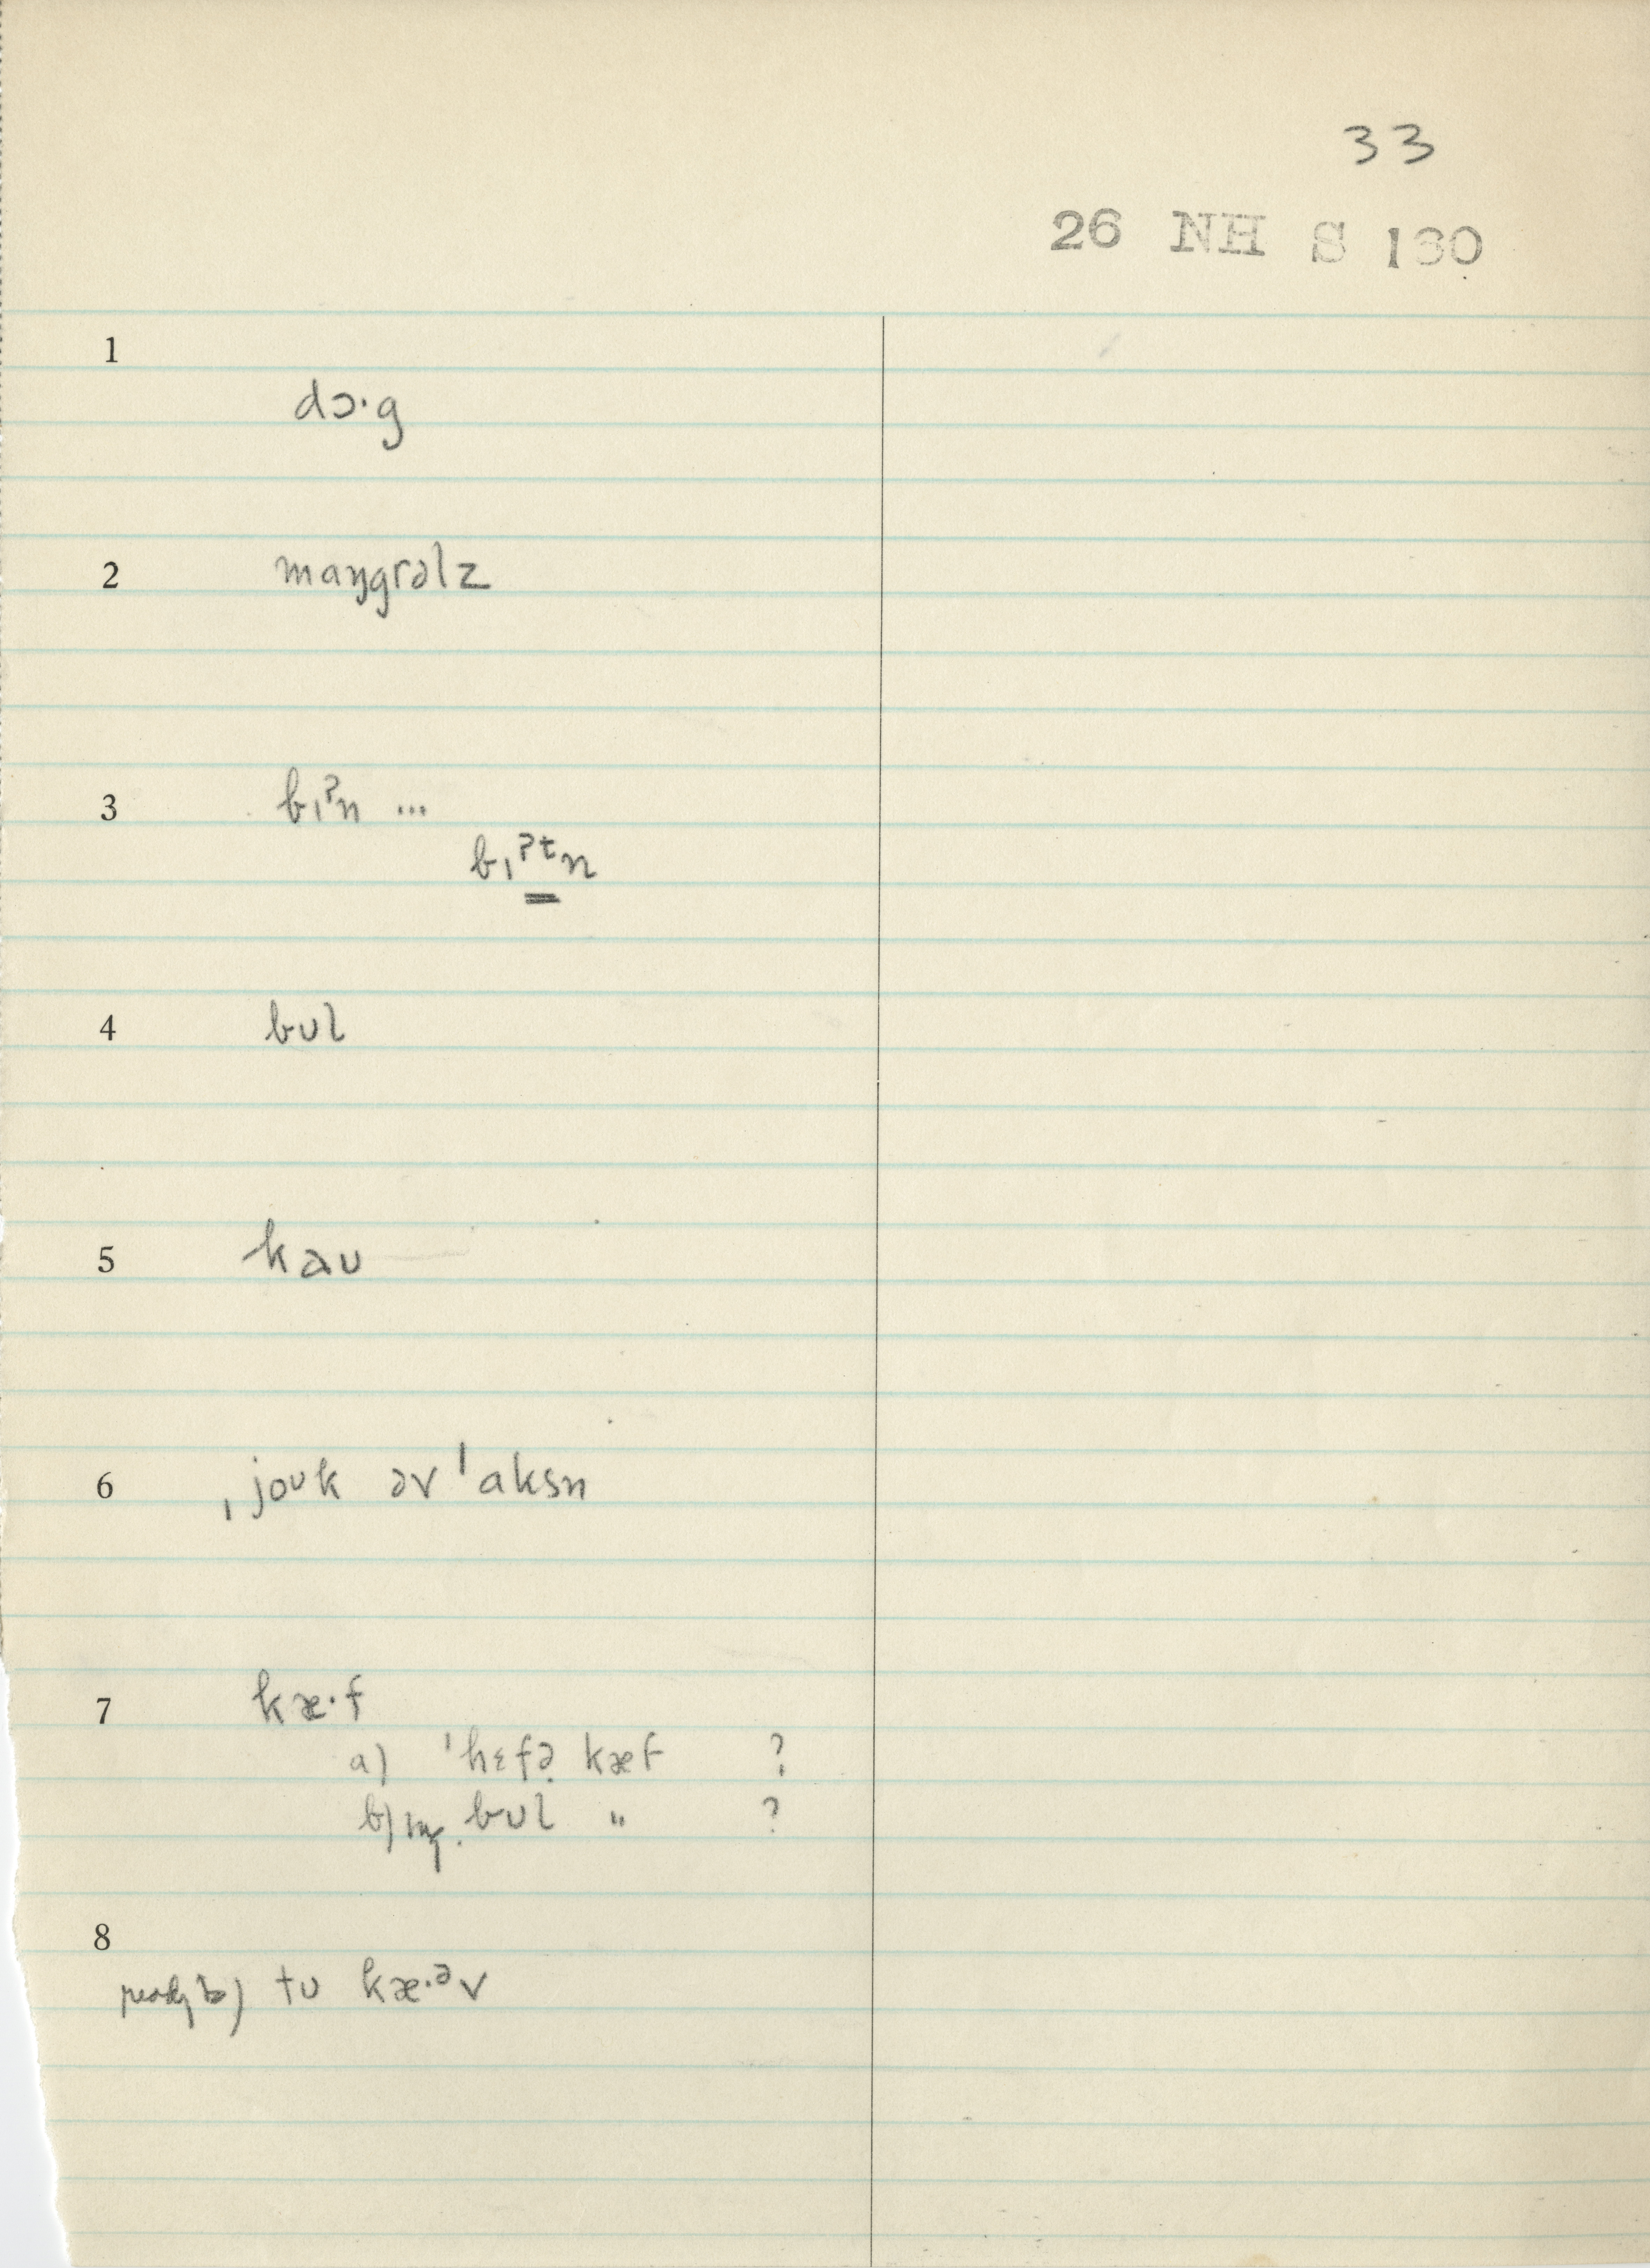 33
26 NH S 130
1
dɔ·g
2 maŋgrəlz
3 bɪˀn ...
bɪˀᵗn
4 bʊl
5 kaʊ
6 ˌjoʊk əv ˈaksn
7 kæ·f
a) ˈhɛfə̣ kæf ?
b) bʊl " ?
8
ready to) tʊ kæ·ᵊv